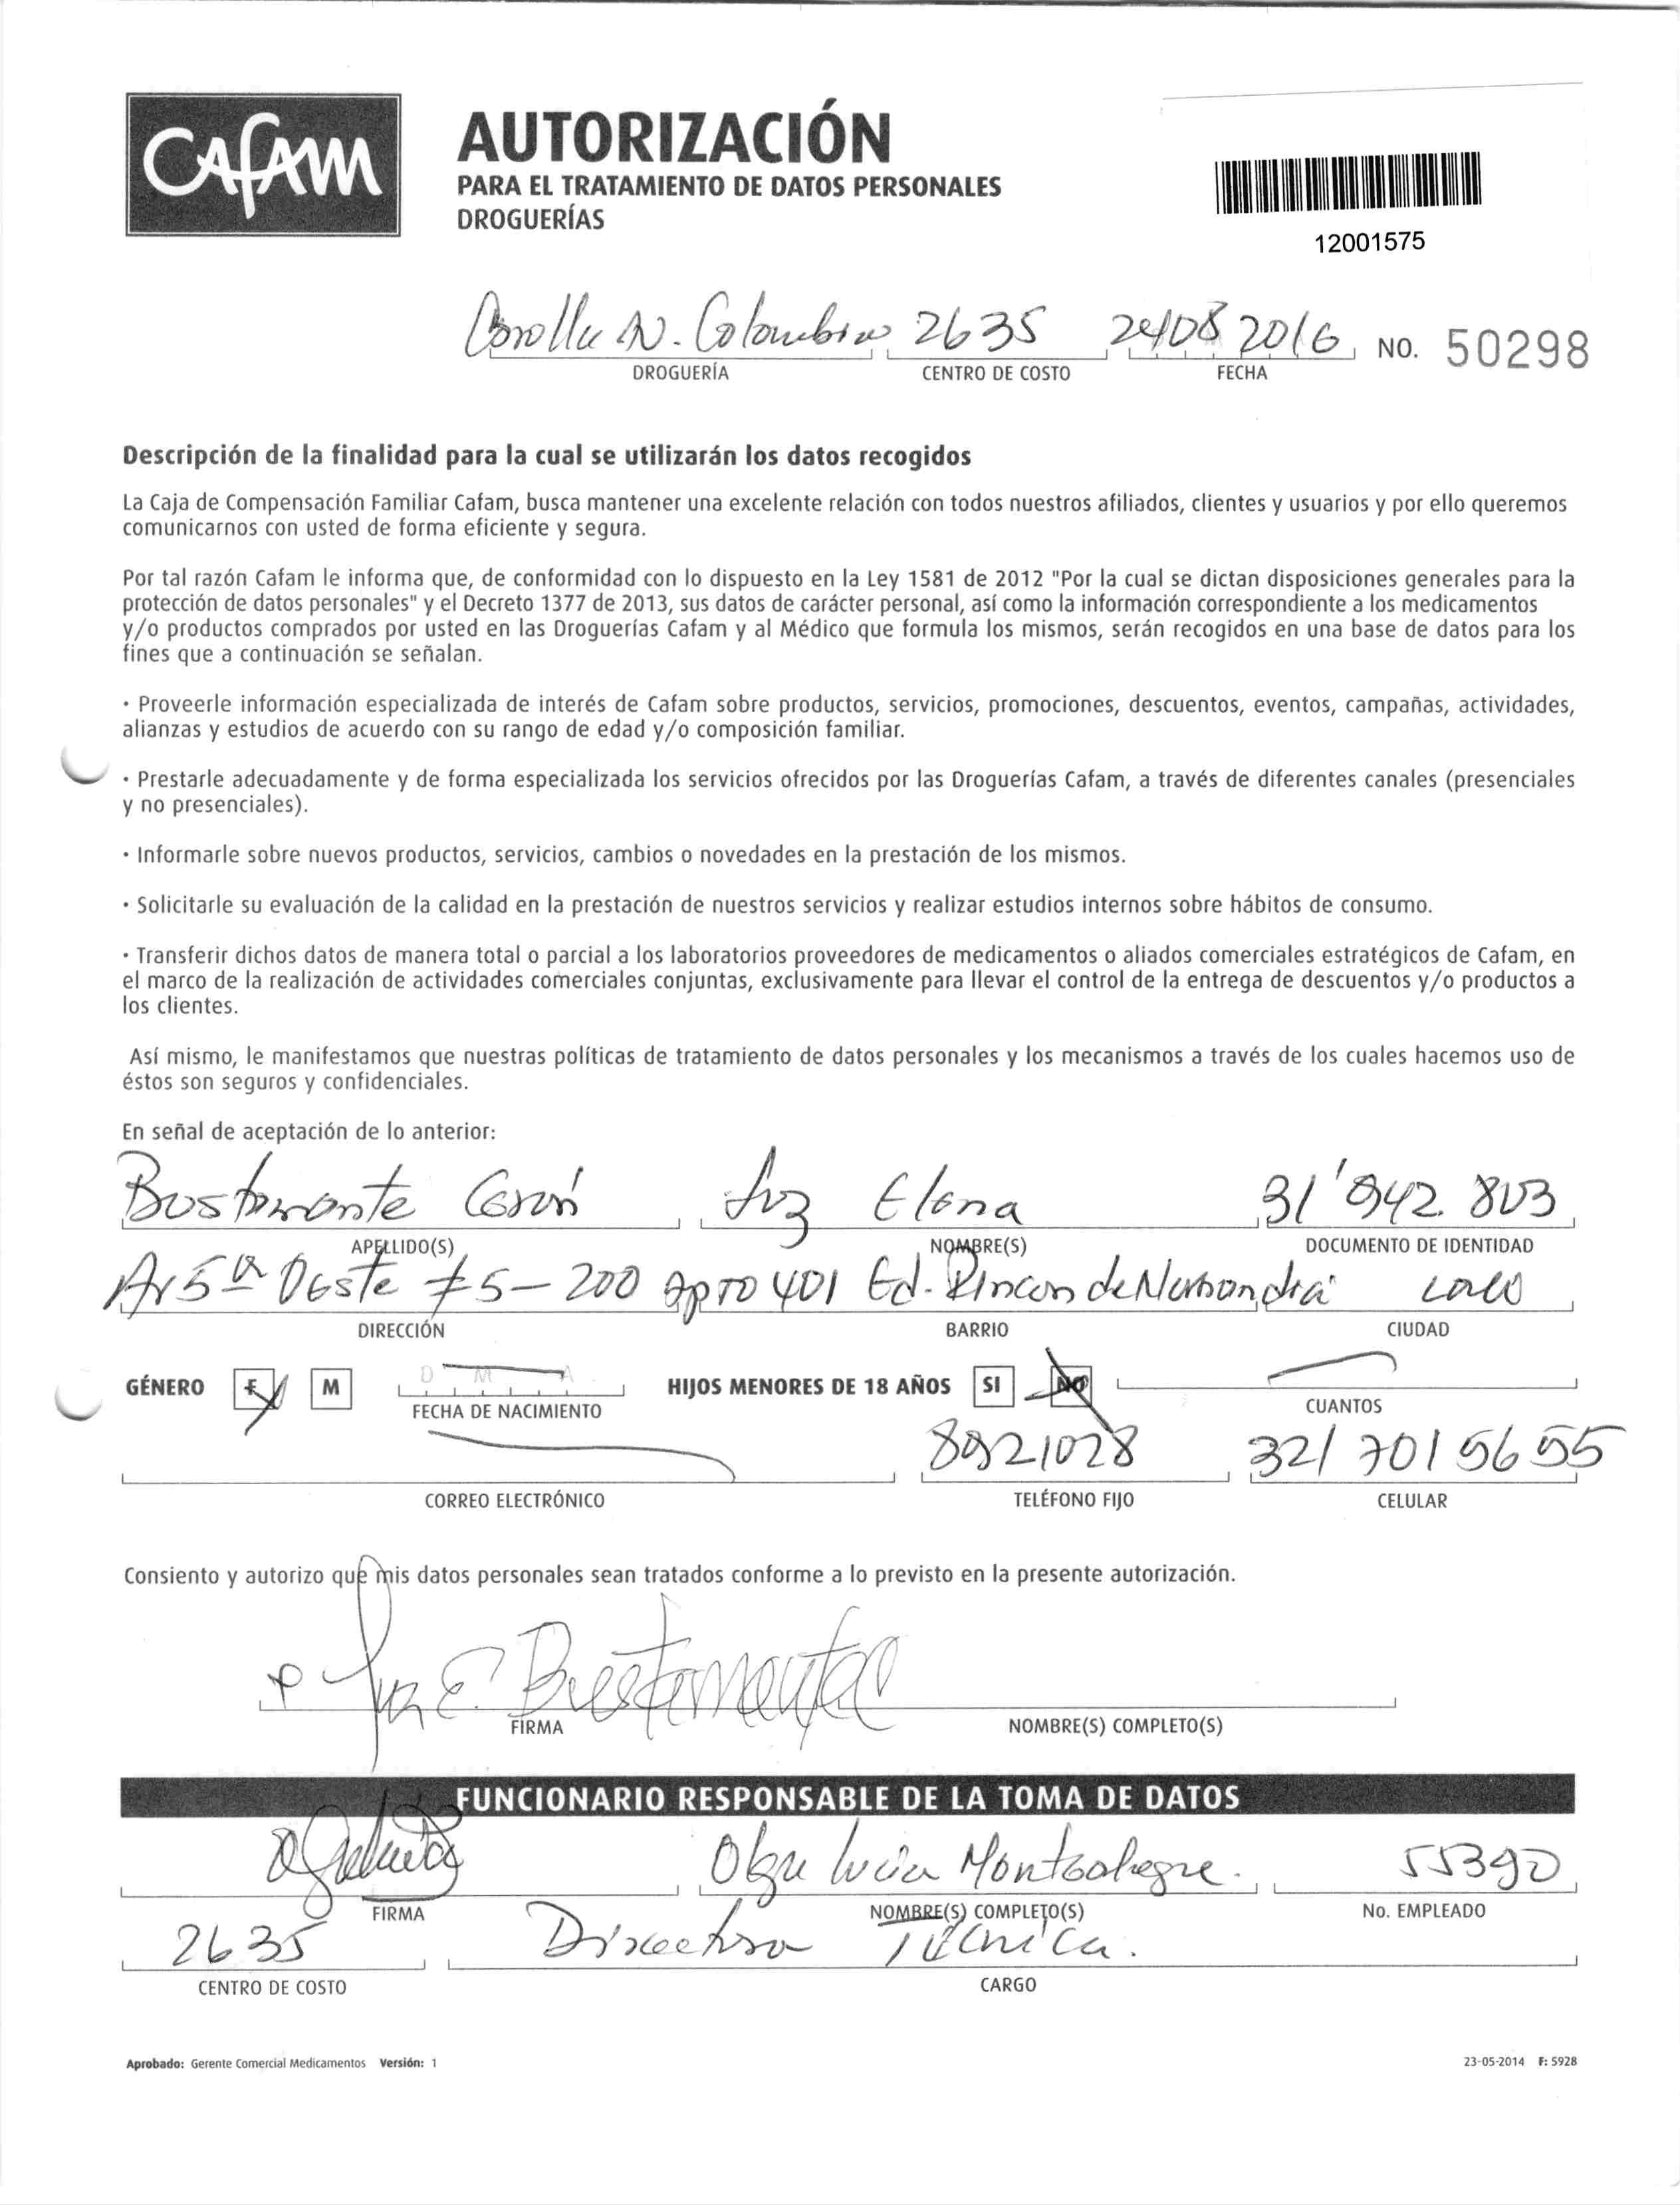 CAFAM
AUTORIZACIÓN
PARA EL TRATAMIENTO DE DATOS PERSONALES
DROGUERÍAS
12001575
N. Colombia 2635 24/08 2016 NO. 50298
DROGUERÍA CENTRO DE COSTO FECHA
Descripción de la finalidad para la cual se utilizarán los datos recogidos
La Caja de Compensación Familiar Cafam, busca mantener una excelente relación con todos nuestros afiliados, clientes y usuarios y por ello queremos
comunicarnos con usted de forma eficiente y segura.
Por tal razón Cafam le informa que, de conformidad con lo dispuesto en la Ley 1581 de 2012 "Por la cual se dictan disposiciones generales para la
protección de datos personales" y el Decreto 1377 de 2013, sus datos de carácter personal, así como la información correspondiente a los medicamentos
y/o productos comprados por usted en las Droguerías Cafam y al Médico que formula los mismos, serán recogidos en una base de datos para los
fines que a continuación se señalan.
· Proveerle información especializada de interés de Cafam sobre productos, servicios, promociones, descuentos, eventos, campañas, actividades,
alianzas y estudios de acuerdo con su rango de edad y/o composición familiar.
· Prestarle adecuadamente y de forma especializada los servicios ofrecidos por las Droguerías Cafam, a través de diferentes canales (presenciales
y no presenciales).
· Informarle sobre nuevos productos, servicios, cambios o novedades en la prestación de los mismos.
· Solicitarle su evaluación de la calidad en la prestación de nuestros servicios y realizar estudios internos sobre hábitos de consumo.
· Transferir dichos datos de manera total o parcial a los laboratorios proveedores de medicamentos o aliados comerciales estratégicos de Cafam, en
el marco de la realización de actividades comerciales conjuntas, exclusivamente para llevar el control de la entrega de descuentos y/o productos a
los clientes.
Así mismo, le manifestamos que nuestras políticas de tratamiento de datos personales y los mecanismos a través de los cuales hacemos uso de
éstos son seguros y confidenciales.
En señal de aceptación de lo anterior:
Bustamante Luz Elena 31'942.803
APELLIDO(S) NOMBRE(S) DOCUMENTO DE IDENTIDAD
5ª Oeste # 5-200 apto 401 Ed. Rincon de Normandia
DIRECCIÓN BARRIO CIUDAD
GÉNERO F M D M A HIJOS MENORES DE 18 AÑOS SI NO
FECHA DE NACIMIENTO CUANTOS
8921028 321 701 5655
CORREO ELECTRÓNICO TELÉFONO FIJO CELULAR
Consiento y autorizo que mis datos personales sean tratados conforme a lo previsto en la presente autorización.
Luz E. Bustamante
FIRMA NOMBRE(S) COMPLETO(S)
FUNCIONARIO RESPONSABLE DE LA TOMA DE DATOS
Olga Lucia Montealegre. 55390
FIRMA NOMBRE(S) COMPLETO(S) No. EMPLEADO
2635 Directora Técnica.
CENTRO DE COSTO CARGO
Aprobado: Gerente Comercial Medicamentos Versión: 1 23-05-2014 F: 5928